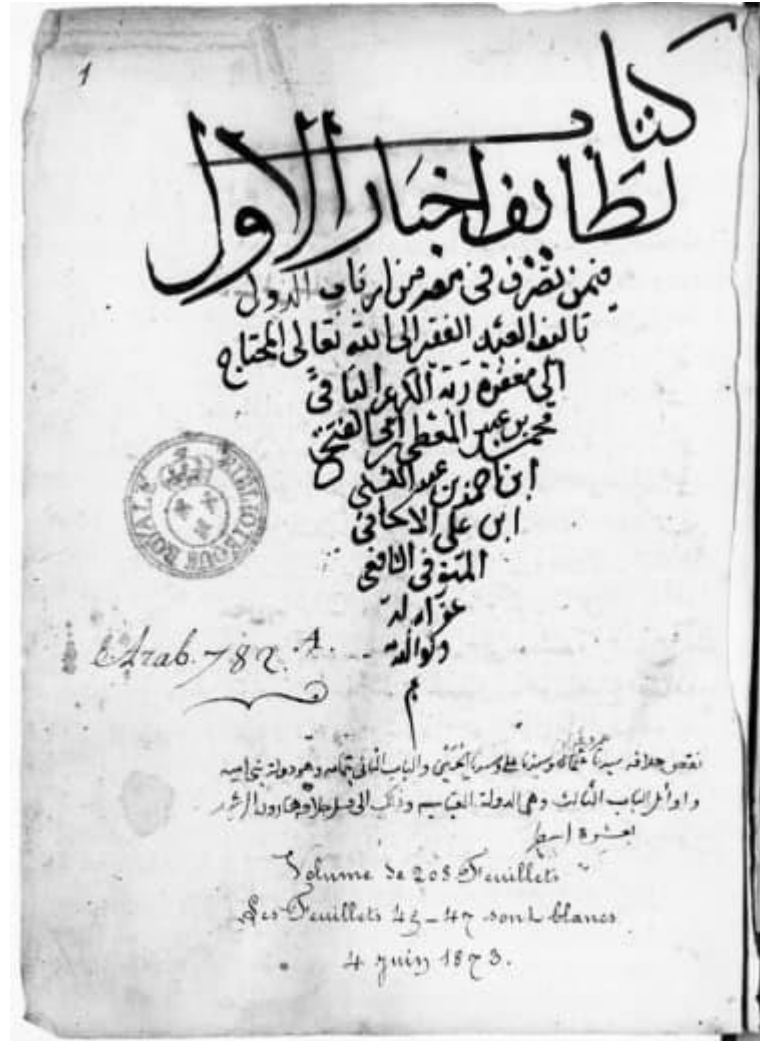 1
كتاب
لطائف اخبار الاول
فيمن تصرف في مصر من ارباب الدول
تاليف العبد الفقير الى الله تعالى المحتاج
الى مغفرة ربه الكريم الباقي
محمد بن عبد المعطي ابن ابي الفتح
ابن احمد بن عبد المغني
ابن علي الاسحاقي
المنوفي الشافعي
غفر له
ولوالديه
م
BIBLIOTHEQUE ROYALE
Arab. 782. A.
نقص خلافه سيدنا عثمان وسيدنا علي وسيدنا الحسن والباب الثاني بتمامه وهو دولة بني اميه
واوائل الباب الثالث وهي الدولة العباسيه وذلك الى قبل خلافة هارون الرشيد
بعشرة اسطر
Volume de 208 Feuillets
Les Feuillets 45-47 sont blancs
4 Juin 1873.